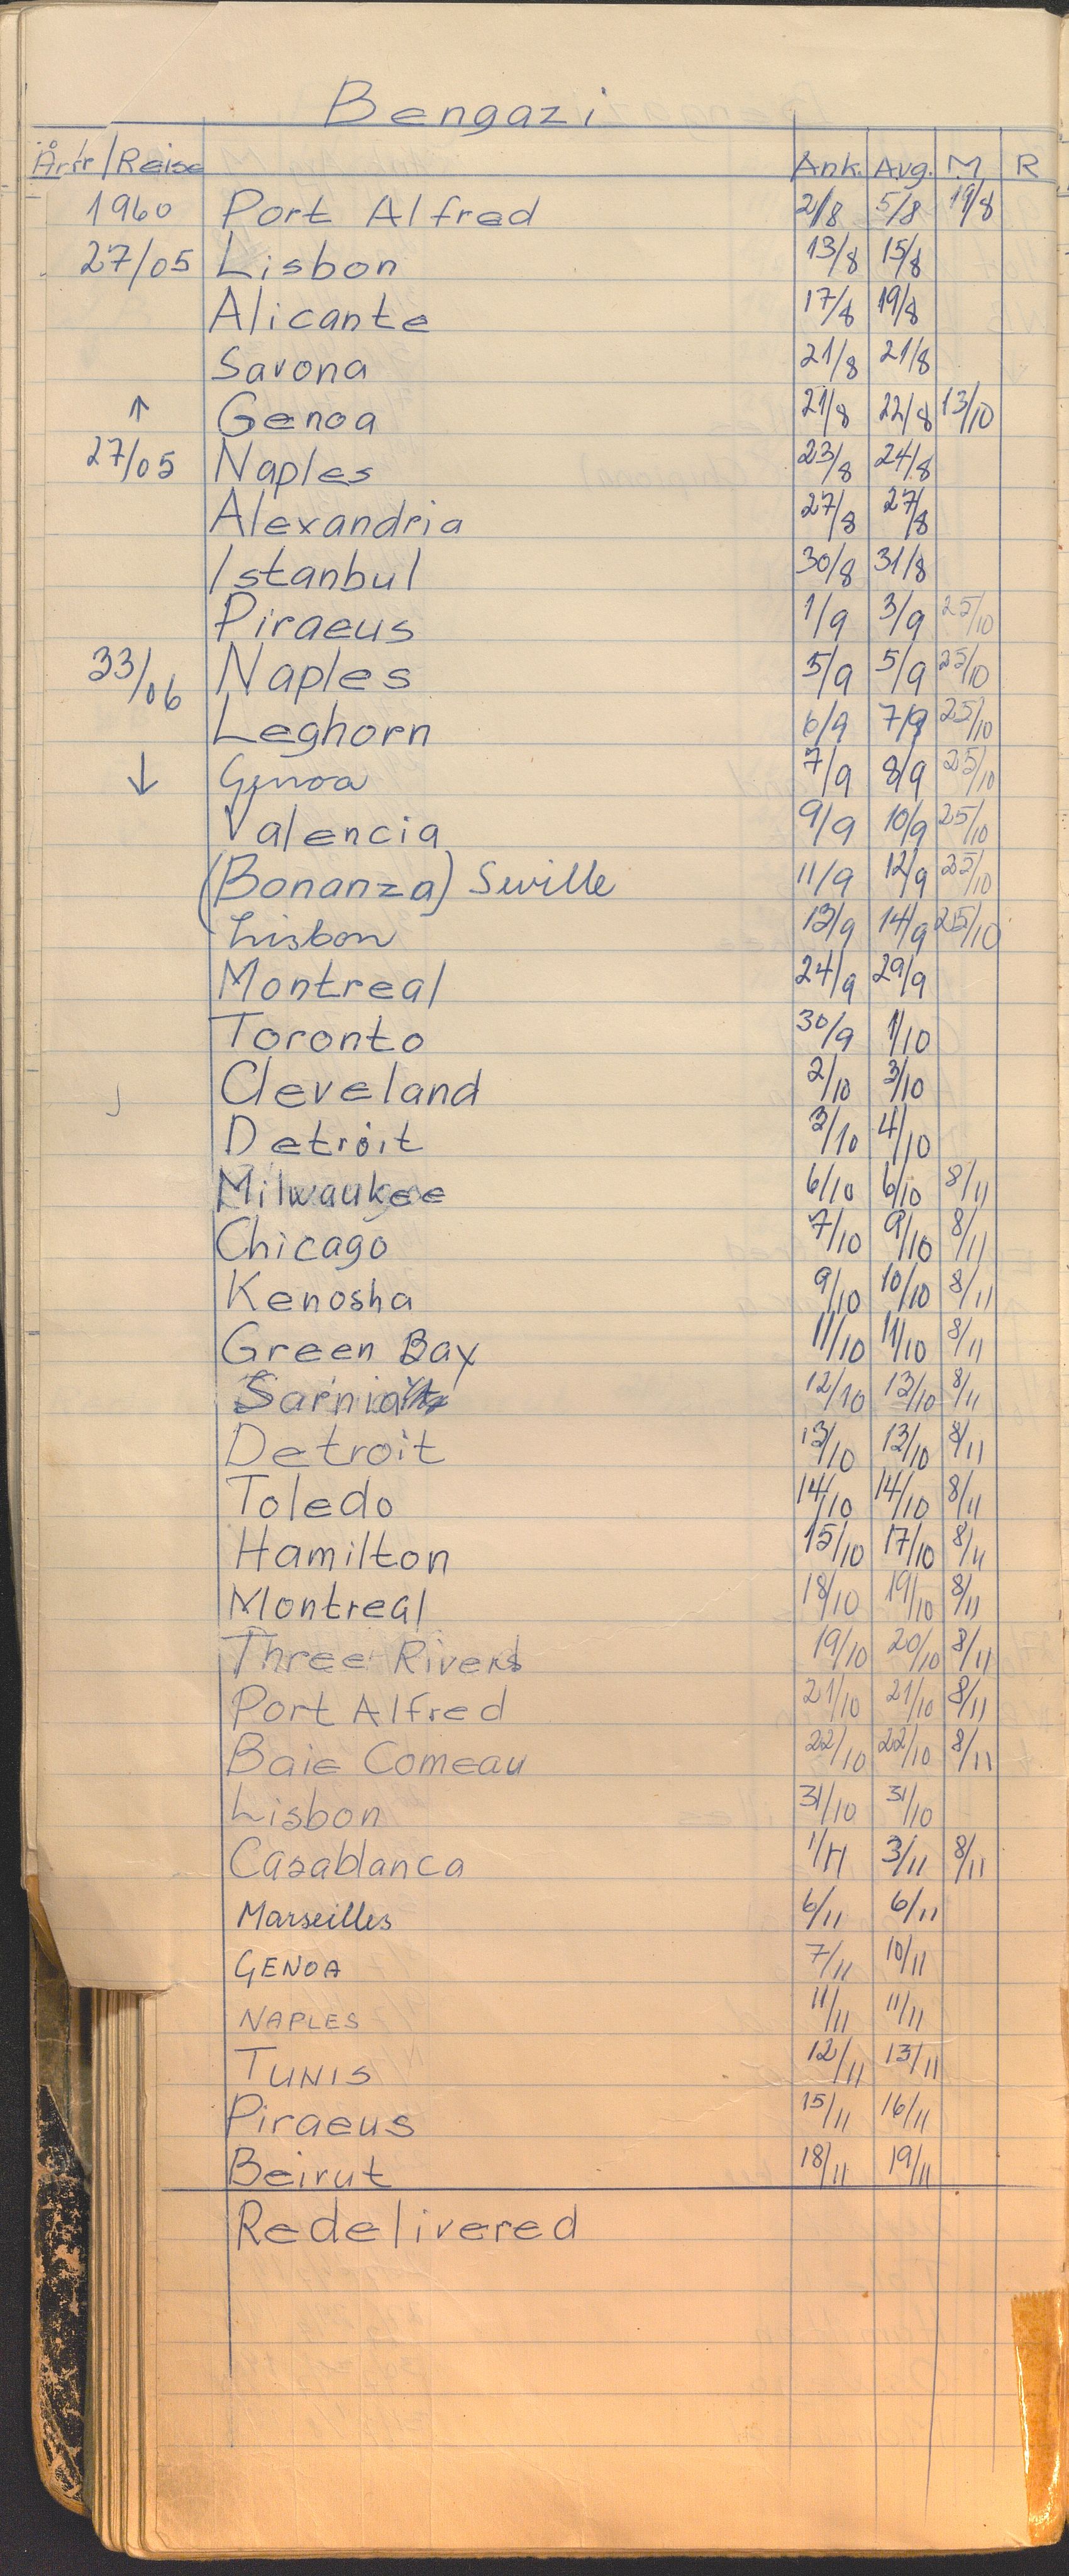 Bengazi
År tr/Reise Ank. Avg. M R
1960 Port Alfred 2/8 5/8 19/8
27/05 Lisbon 13/8 15/8
Alicante 17/8 19/8
Savona 21/8 21/8
↑ Genoa 21/8 22/8 13/10
27/05 Naples 23/8 24/8
Alexandria 27/8 27/8
Istanbul 30/8 31/8
Piraeus 1/9 3/9 25/10
33/06 Naples 5/9 5/9 25/10
Leghorn 6/9 7/9 25/10
↓ Genoa 7/9 8/9 25/10
Valencia 9/9 10/9 25/10
(Bonanza) Seville 11/9 12/9 25/10
Lisbon 13/9 14/9 25/10
Montreal 24/9 29/9
Toronto 30/9 1/10
Cleveland 2/10 3/10
Detroit 3/10 4/10
Milwaukee 6/10 6/10 8/11
Chicago 7/10 9/10 8/11
Kenosha 9/10 10/10 8/11
Green Bay 11/10 11/10 8/11
Sarnia 12/10 13/10 8/11
Detroit 13/10 13/10 8/11
Toledo 14/10 14/10 8/11
Hamilton 15/10 17/10 8/11
Montreal 18/10 19/10 8/11
Three Rivers 19/10 20/10 8/11
Port Alfred 21/10 21/10 8/11
Baie Comeau 22/10 22/10 8/11
Lisbon 31/10 31/10
Casablanca 1/11 3/11 8/11
Marseilles 6/11 6/11
GENOA 7/11 10/11
NAPLES 11/11 11/11
TUNIS 12/11 13/11
Piraeus 15/11 16/11
Beirut 18/11 19/11
Redelivered